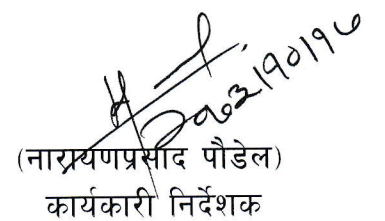 २०७३।१०।१७
(नारायणप्रसाद पौडेल)
कार्यकारी निर्देशक